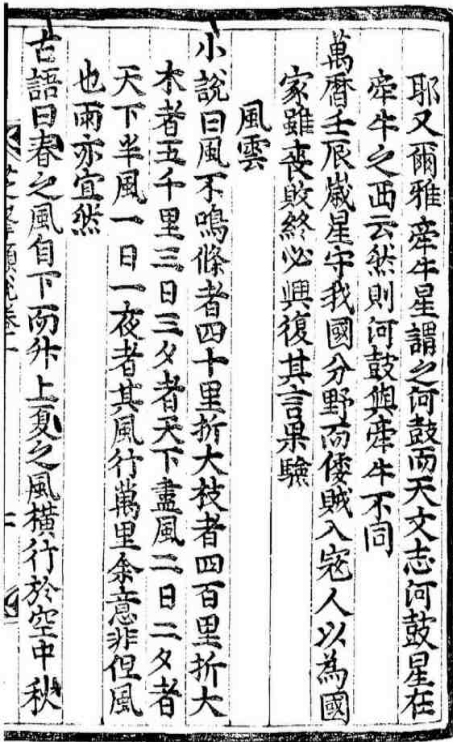 耶又爾雅牽牛星謂之河鼓而天文志河鼓星在
牽牛之西云然則河鼓與牽牛不同
萬曆壬辰歲星守我國分野而倭賊入寇人以為國
家雖喪敗終必興復其言果驗
風雲
小說曰風不鳴條者四十里折大枝者四百里折大
木者五千里三日三夕者天下盡風二日二夕者
天下半風一日一夜者其風行萬里余意非但風
也雨亦宜然
古語曰春之風自下而升上夏之風橫行於空中秋
芝峯類說卷一